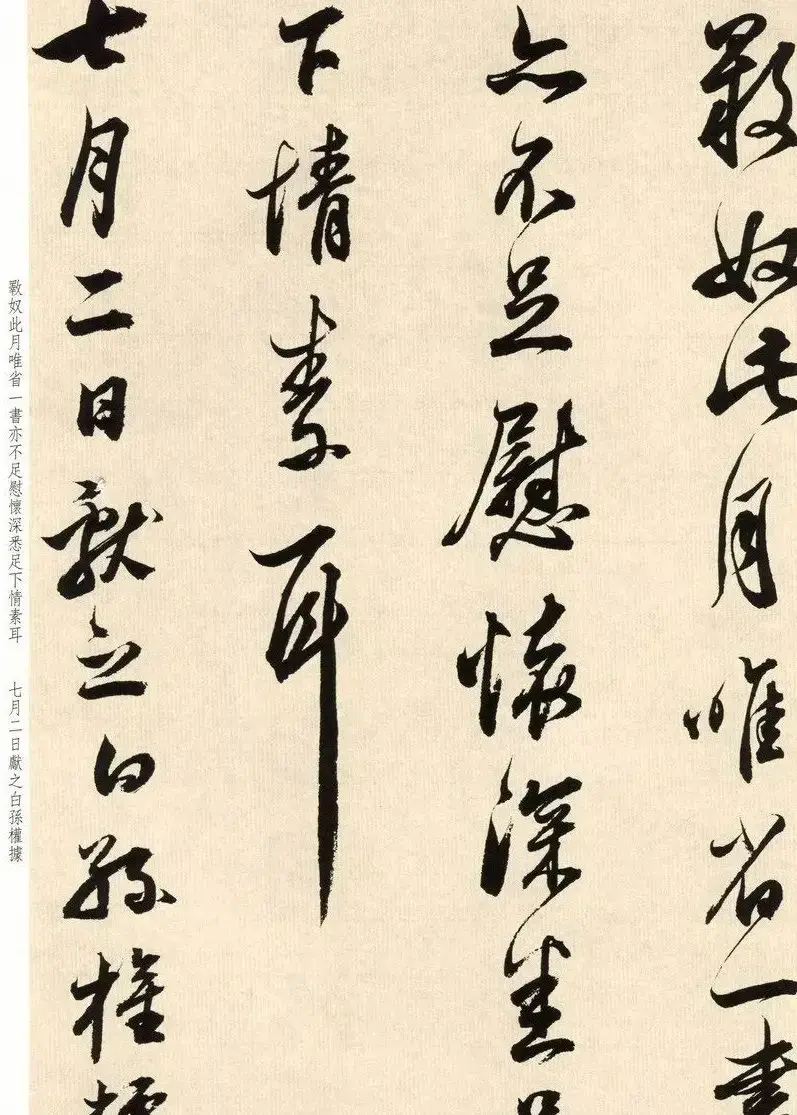 㪇奴此月唯省一書
亦不足慰懷深悉足
下情素耳
七月二日獻之白孫權據
㪇奴此月唯省一書亦不足慰懷深悉足下情素耳 七月二日獻之白孫權據